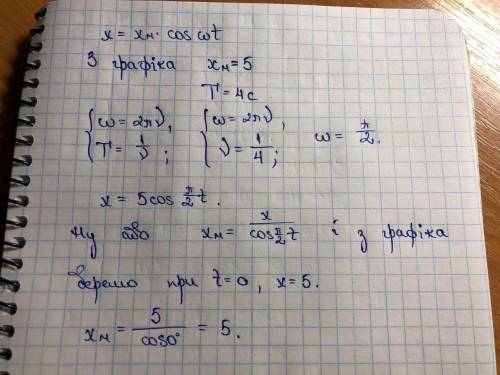 x = xм · cos ωt
З графіка xм = 5
T = 4c
{ω = 2πν, T = 1/ν; {ω = 2πν, ν = 1/4; ω = π/2.
x = 5cos π/2 t.
Ну або xм = x / cos π/2 t і з графіка
беремо при t = 0, x = 5.
xм = 5 / cos0° = 5.